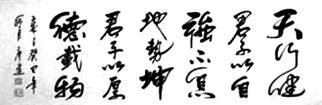 天行健
君子以自
強不息
地勢坤
君子以厚
德載物
癸巳年